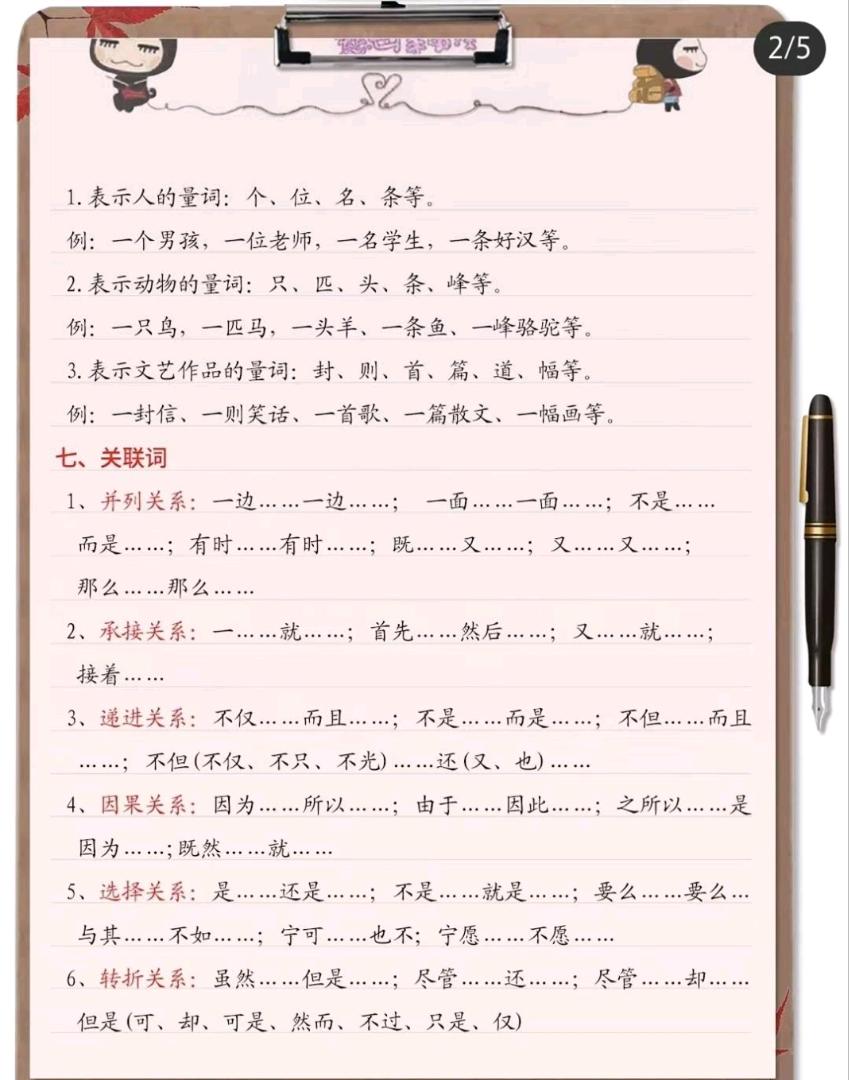 2/5
1.表示人的量词：个、位、名、条等。
例：一个男孩，一位老师，一名学生，一条好汉等。
2.表示动物的量词：只、匹、头、条、峰等。
例：一只鸟，一匹马，一头羊、一条鱼、一峰骆驼等。
3.表示文艺作品的量词：封、则、首、篇、道、幅等。
例：一封信、一则笑话、一首歌、一篇散文、一幅画等。
七、关联词
1、并列关系：一边……一边……； 一面……一面……；不是……
而是……；有时……有时……；既……又……；又……又……；
那么……那么……
2、承接关系：一……就……；首先……然后……；又……就……；
接着……
3、递进关系：不仅……而且……；不是……而是……；不但……而且
……；不但(不仅、不只、不光)……还(又、也)……
4、因果关系：因为……所以……；由于……因此……；之所以……是
因为……;既然……就……
5、选择关系：是……还是……；不是……就是……；要么……要么…
与其……不如……；宁可……也不；宁愿……不愿……
6、转折关系：虽然……但是……；尽管……还……；尽管……却……
但是(可、却、可是、然而、不过、只是、仅)